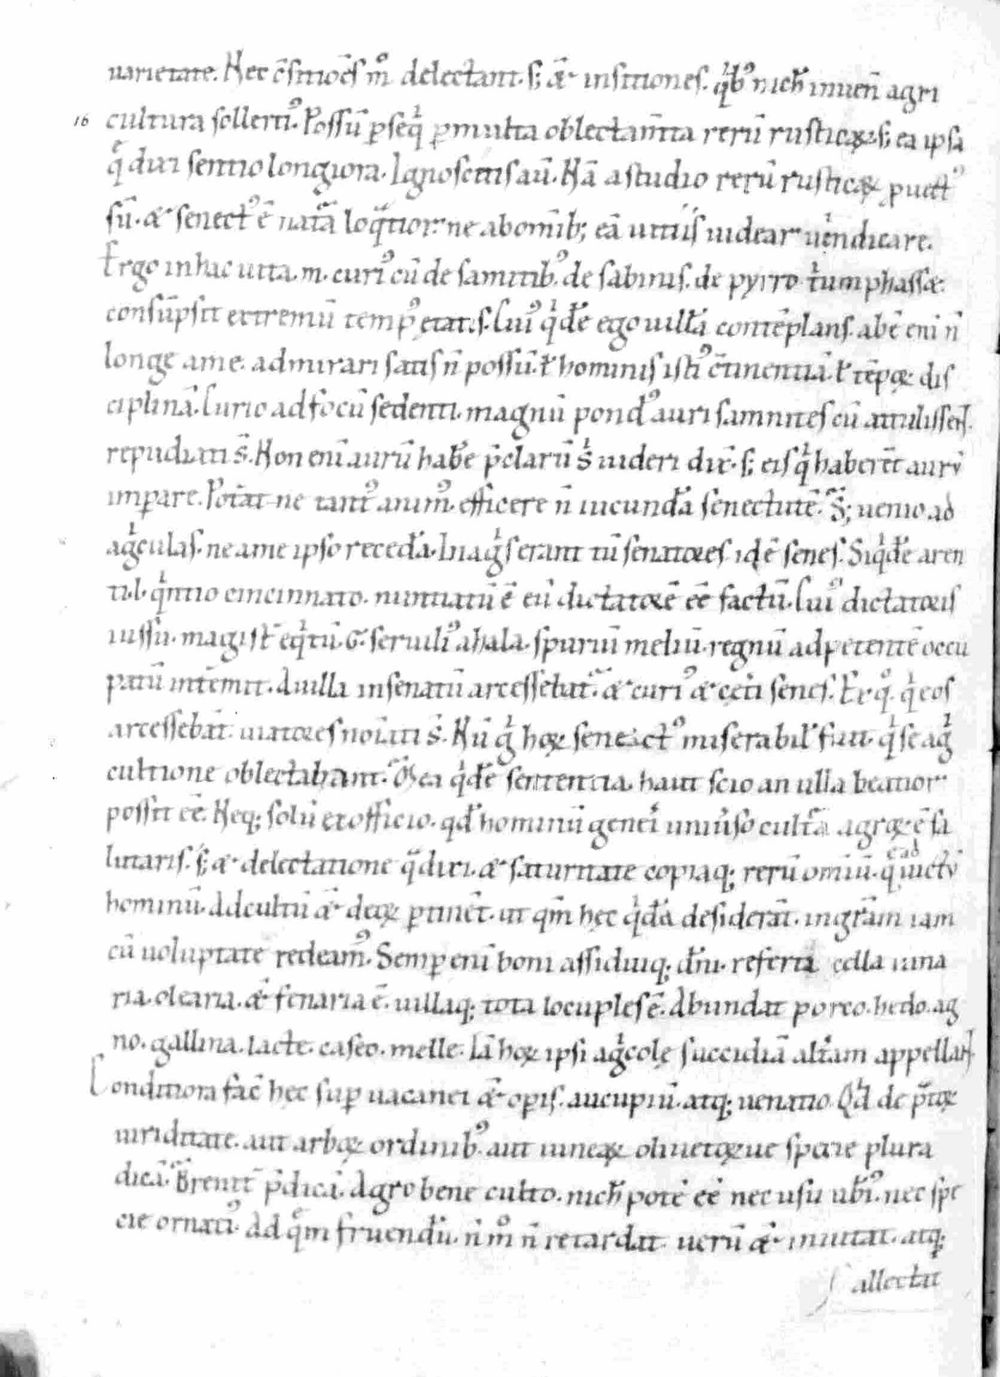 uarietate. Nec c̄sitioēs m̊ delectant. s; &̄ insitiones. q̇b᾽ nich̄ inuen̄ agri
16 cultura sollerti᾽. Possū p̄seq̇ p̄multa oblectam̄ta rerū rusticaꝝ. s; ea ipsa
q̄ dixi sentio longiora. Ignoscetis aū. Nā a studio rerū rusticaꝝ puect᾽
sū. & senect᾽ ē nat̄a loq̄tior. ne ab om̄ib; eā uitiis uidear uēndicare.
Ergo in hac uita. m. curi᾽ cū de samitib᾽. de sabinis. de pyrro t̄umphass&.
consūpsit extremū temp᾽ ętatis. Cui᾽ q̇dē ego uillā contēplans. abē eni n̄
longe ame. admirari satis n̄ possū. ł hominis isti᾽ c̄tinentiā. ł tēpoꝝ dis
ciplinā. Curio ad focū sedenti. magnū pond᾽ auri samnites cū attulissent.
repudiati s̄. Non eni aurū habe p̄clarū s̄ uideri dix̄. s; eis q̇ haberēt aurū
imp̄are. Pot̄at ne tant᾽ anim᾽. efficere n̄ iucundā senectutē. S; uenio ad
ag̊culas. ne ame ipso recedā. In ag̊s erant tū senatores id ē senes. Siq̇dē aran
ti. l. q̇ntio cincinnato. nuntiatū ē eū dictatorē eē factū. Cui᾽ dictatoris
iussu. magist̄ eq̇tū. G. seruili᾽ ahala. spuriū meliū. regnū adpetentē occu
patū int̄emit. A uilla in senatū arcessebat̄. & curi᾽ & cet̄i senes. Ex q᾽. q̇ eos
arcessebāt. uiatores noīati s̄. Nū g̊ hoꝝ senect᾽ miserabil᾽ fuit. q̇ se ag̊
cultione oblectabant. Mea q̇dē sententia. haut scio an ulla beatior
possit eē. Neq; solū ex officio. qd̄ hominū genei uniūso cult̄a agroꝝ ē sa
lutaris. s; & delectatione q̄ dixi. & saturitate copiaq; rerū omiū. q̄ ead uictū
hominū. Ad cultū &̄ deoꝝ p̄tinēt. ut qm̄ hec q̇dā desiderāt. in gr̄am iam
cū uoluptate redeam᾽. Semp eni boni assiduiq; dn̄i. referta cella uina
ria. olearia. & fenaria ē. uillaq; tota locuples ē. Abundat porco. hedo. ag
no. gallina. lacte. caseo. melle. Iā hoꝝ ipsi ag̊colę succidiā alt̄am appellant.
Conditiora faċ hęc sup uacanei &̄ opis. aucupiū. atq; uenatio. Qd̄ de p̄toꝝ
uiriditate. aut arboꝝ ordinib᾽. aut uineaꝝ oliuetoꝝue specie plura
dicā. Breuit̄ p̄dicā. Agro bene culto. nich̄ pote eē nec usu ub̄i᾽. nec spe
cie ornati᾽. Ad q̄m fruendū. n̄ m̊ n̄ retardat. uerū &̄ inuitat. atq;
allectat